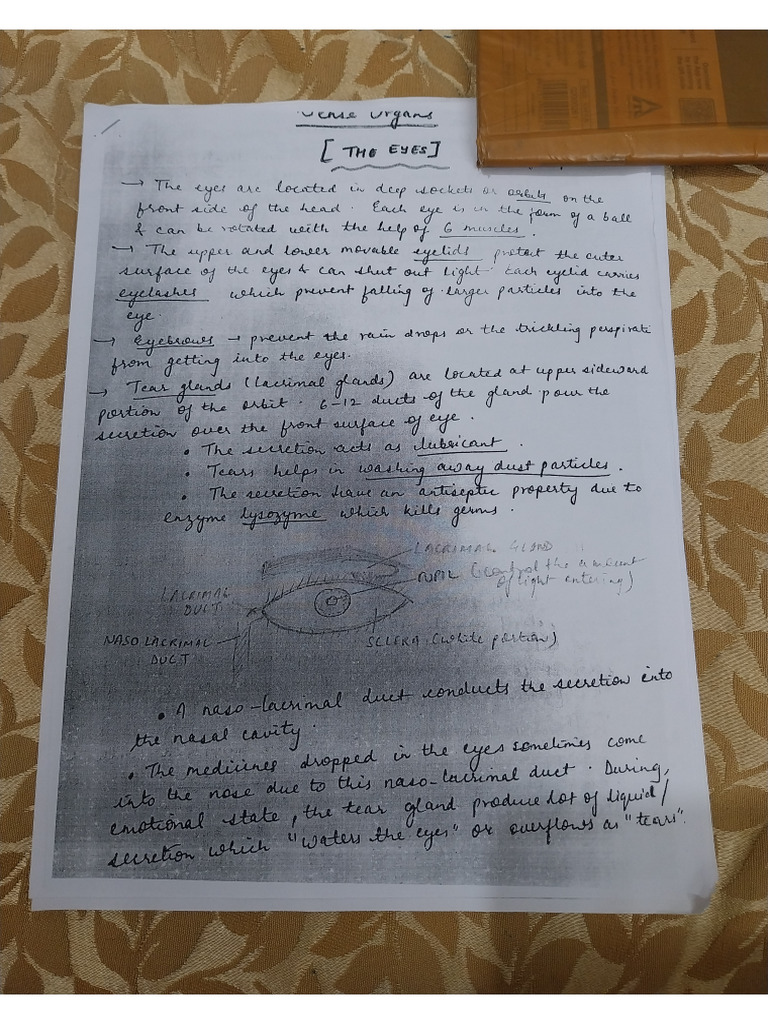 Sense Organs
[ THE EYES ]
→ The eyes are located in deep sockets or orbits on the
front side of the head. Each eye is in the form of a ball
& can be rotated with the help of 6 muscles.
→ The upper and lower movable eyelids protect the outer
surface of the eyes & can shut out light. Each eyelid carries
eyelashes which prevent falling of larger particles into the
eye.
→ Eyebrows → prevent the rain drops or the trickling perspirate
from getting into the eyes.
→ Tear glands (lacrimal glands) are located at upper sideward
portion of the orbit. 6-12 ducts of the gland pour the
secretion over the front surface of eye.
• The secretion acts as lubricant.
• Tears helps in washing away dust particles.
• The secretion have an antiseptic property due to
enzyme lysozyme which kills germs.
LACRIMAL GLAND
PUPIL (control the amount
of light entering)
LACRIMAL
DUCT
NASO LACRIMAL
DUCT
SCLERA (white portion)
• A naso-lacrimal duct conducts the secretion into
the nasal cavity.
• The medicines dropped in the eyes sometimes come
into the nose due to this naso-lacrimal duct. During,
emotional state, the tear gland produce lot of liquid/
secretion which "waters the eyes" or overflows as "tears".